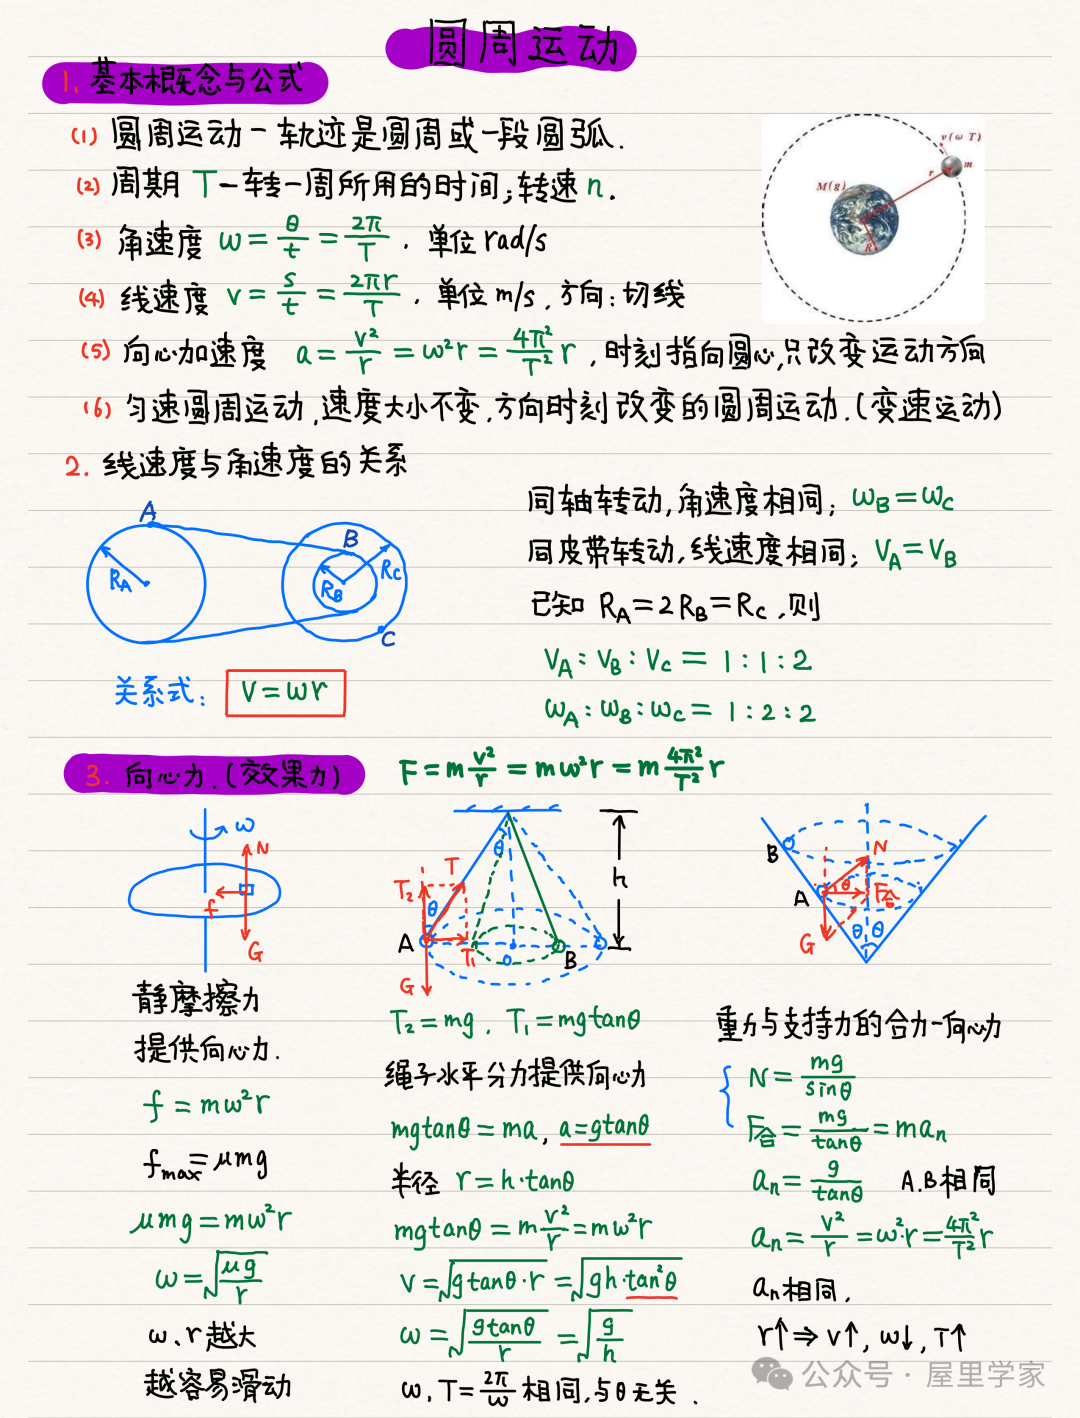 圆周运动
1. 基本概念与公式
(1) 圆周运动-轨迹是圆周或一段圆弧.
(2) 周期 T-转一周所用的时间;转速 n.
(3) 角速度 ω = θ/t = 2π/T . 单位 rad/s
(4) 线速度 v = s/t = 2πr/T . 单位 m/s . 方向:切线
(5) 向心加速度 a = v²/r = ω²r = 4π²/T² r , 时刻指向圆心,只改变运动方向
(6) 匀速圆周运动,速度大小不变,方向时刻改变的圆周运动.(变速运动)
v(ω T)
m
r
M(g)
R
2. 线速度与角速度的关系
A
B
C
R_A
R_B
R_C
关系式: V=ωr
同轴转动,角速度相同; ω_B=ω_C
同皮带转动,线速度相同; V_A=V_B
已知 R_A=2R_B=R_C ,则
V_A:V_B:V_C = 1:1:2
ω_A:ω_B:ω_C = 1:2:2
3. 向心力.(效果力) F = m v²/r = mω²r = m 4π²/T² r
ω
N
f
G
静摩擦力
提供向心力.
f = mω²r
f_max=μmg
μmg=mω²r
ω=√(μg/r)
ω、r越大
越容易滑动
θ
h
T
T₂
θ
A
T₁
O
B
G
T₂=mg . T₁=mgtanθ
绳子水平分力提供向心力
mgtanθ=ma, a=gtanθ
半径 r=h·tanθ
mgtanθ=m v²/r=mω²r
V=√(gtanθ·r)=√(gh·tan²θ)
ω=√(gtanθ/r)=√(g/h)
ω,T=2π/ω 相同,与θ无关.
B
N
A
θ
F合
G
θ θ
重力与支持力的合力-向心力
N=mg/sinθ
F合=mg/tanθ=ma_n
a_n=g/tanθ A.B相同
a_n=v²/r=ω²·r=4π²/T² r
a_n相同,
r↑⇒v↑, ω↓, T↑
公众号 · 屋里学家